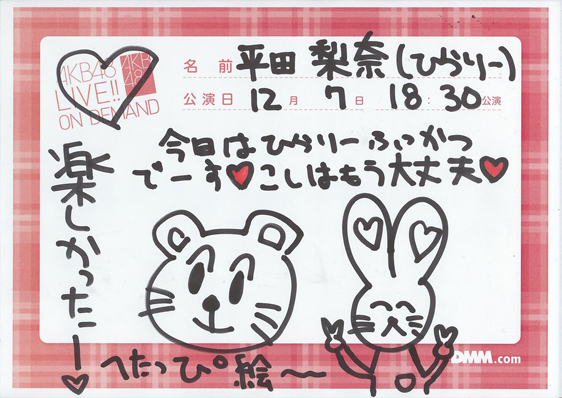 AKB48
LIVE!!
ON DEMAND
AKB
48
名前 平田 梨奈(ひらりー)
公演日 12月 7日 18:30公演
今日はひらりーふっかつ
でーす♥こしはもう大丈夫♥
楽しかったー♡
へたっぴ絵〜
DMM.com